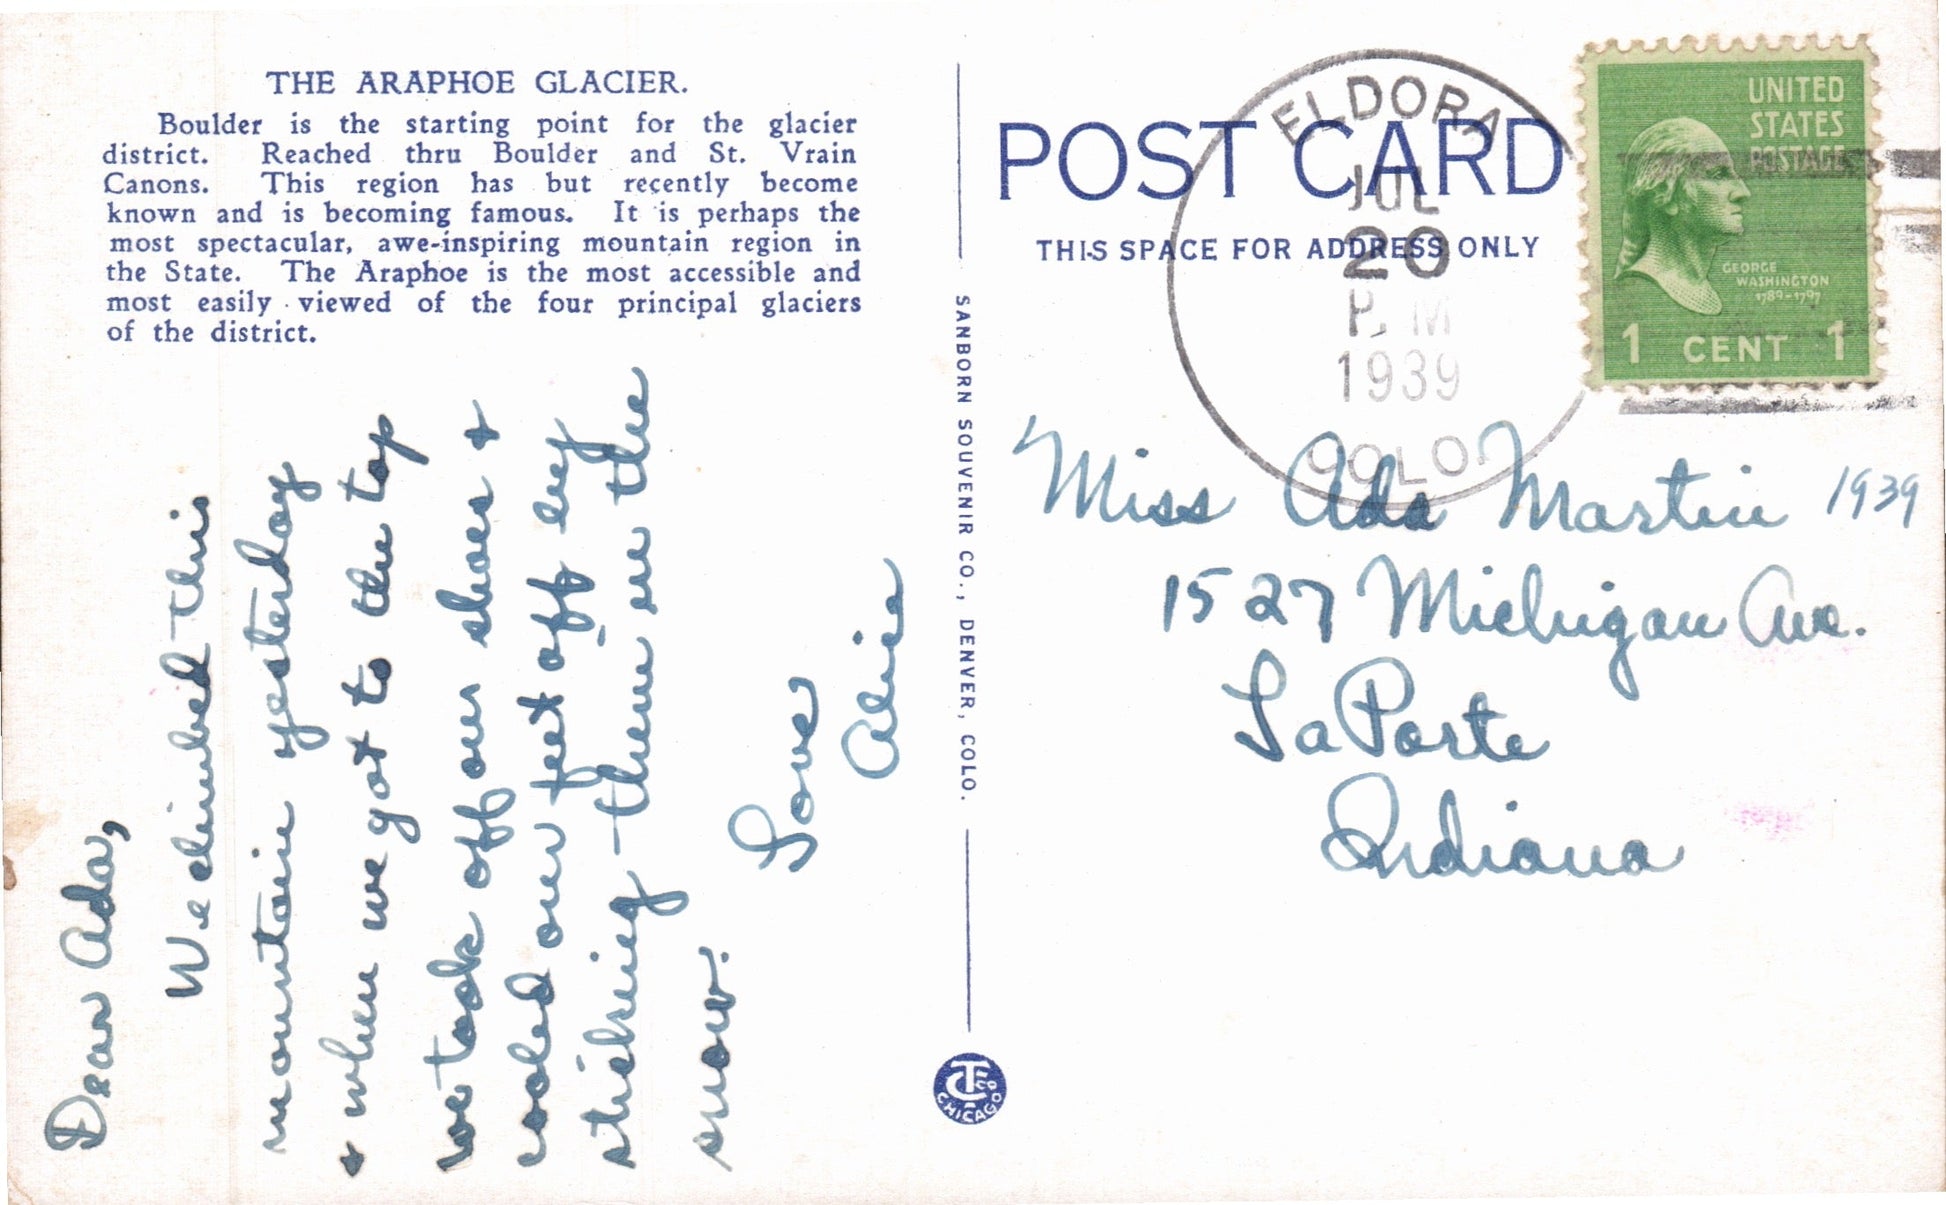 THE ARAPHOE GLACIER.
Boulder is the starting point for the glacier
district. Reached thru Boulder and St. Vrain
Canons. This region has but recently become
known and is becoming famous. It is perhaps the
most spectacular, awe-inspiring mountain region in
the State. The Araphoe is the most accessible and
most easily viewed of the four principal glaciers
of the district.
Dear Ada,
We climbed this
mountain yesterday
+ when we got to the top
we took off our shoes +
cooled our feet off by
sticking them in the
snow.
Love
Alice
SANBORN SOUVENIR CO., DENVER, COLO.
CT CO
CHICAGO
POST CARD
THIS SPACE FOR ADDRESS ONLY
ELDORA
JUL
20
P. M
1939
COLO.
UNITED
STATES
POSTAGE
GEORGE
WASHINGTON
1789-1797
1 CENT 1
Miss Ada Martin 1939
1527 Michigan Ave.
LaPorte
Indiana